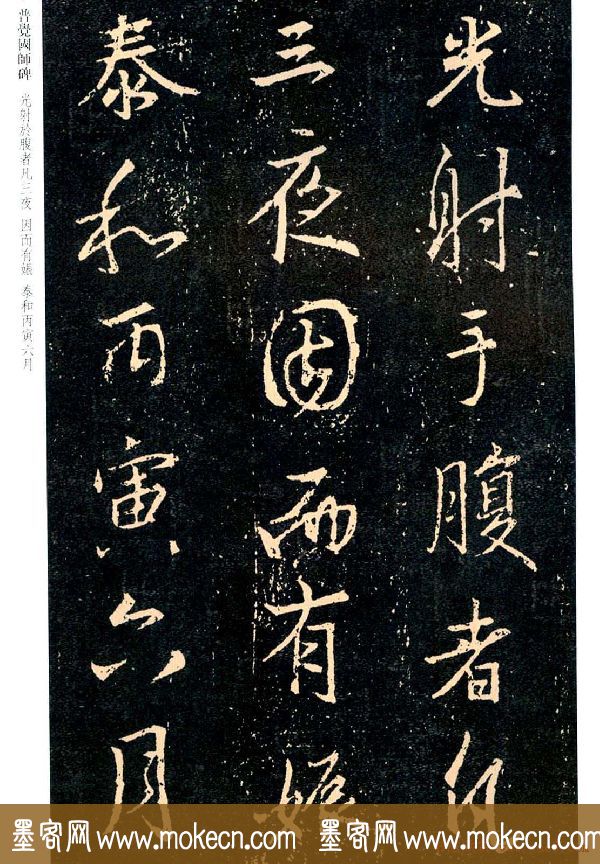 光射于腹者凡
三夜因而有娠
泰和丙寅六月
普覺國師碑 光射於腹者凡三夜 因而有娠 泰和丙寅六月
墨客网 www.mokecn.com 墨客网 www.mokecn.com